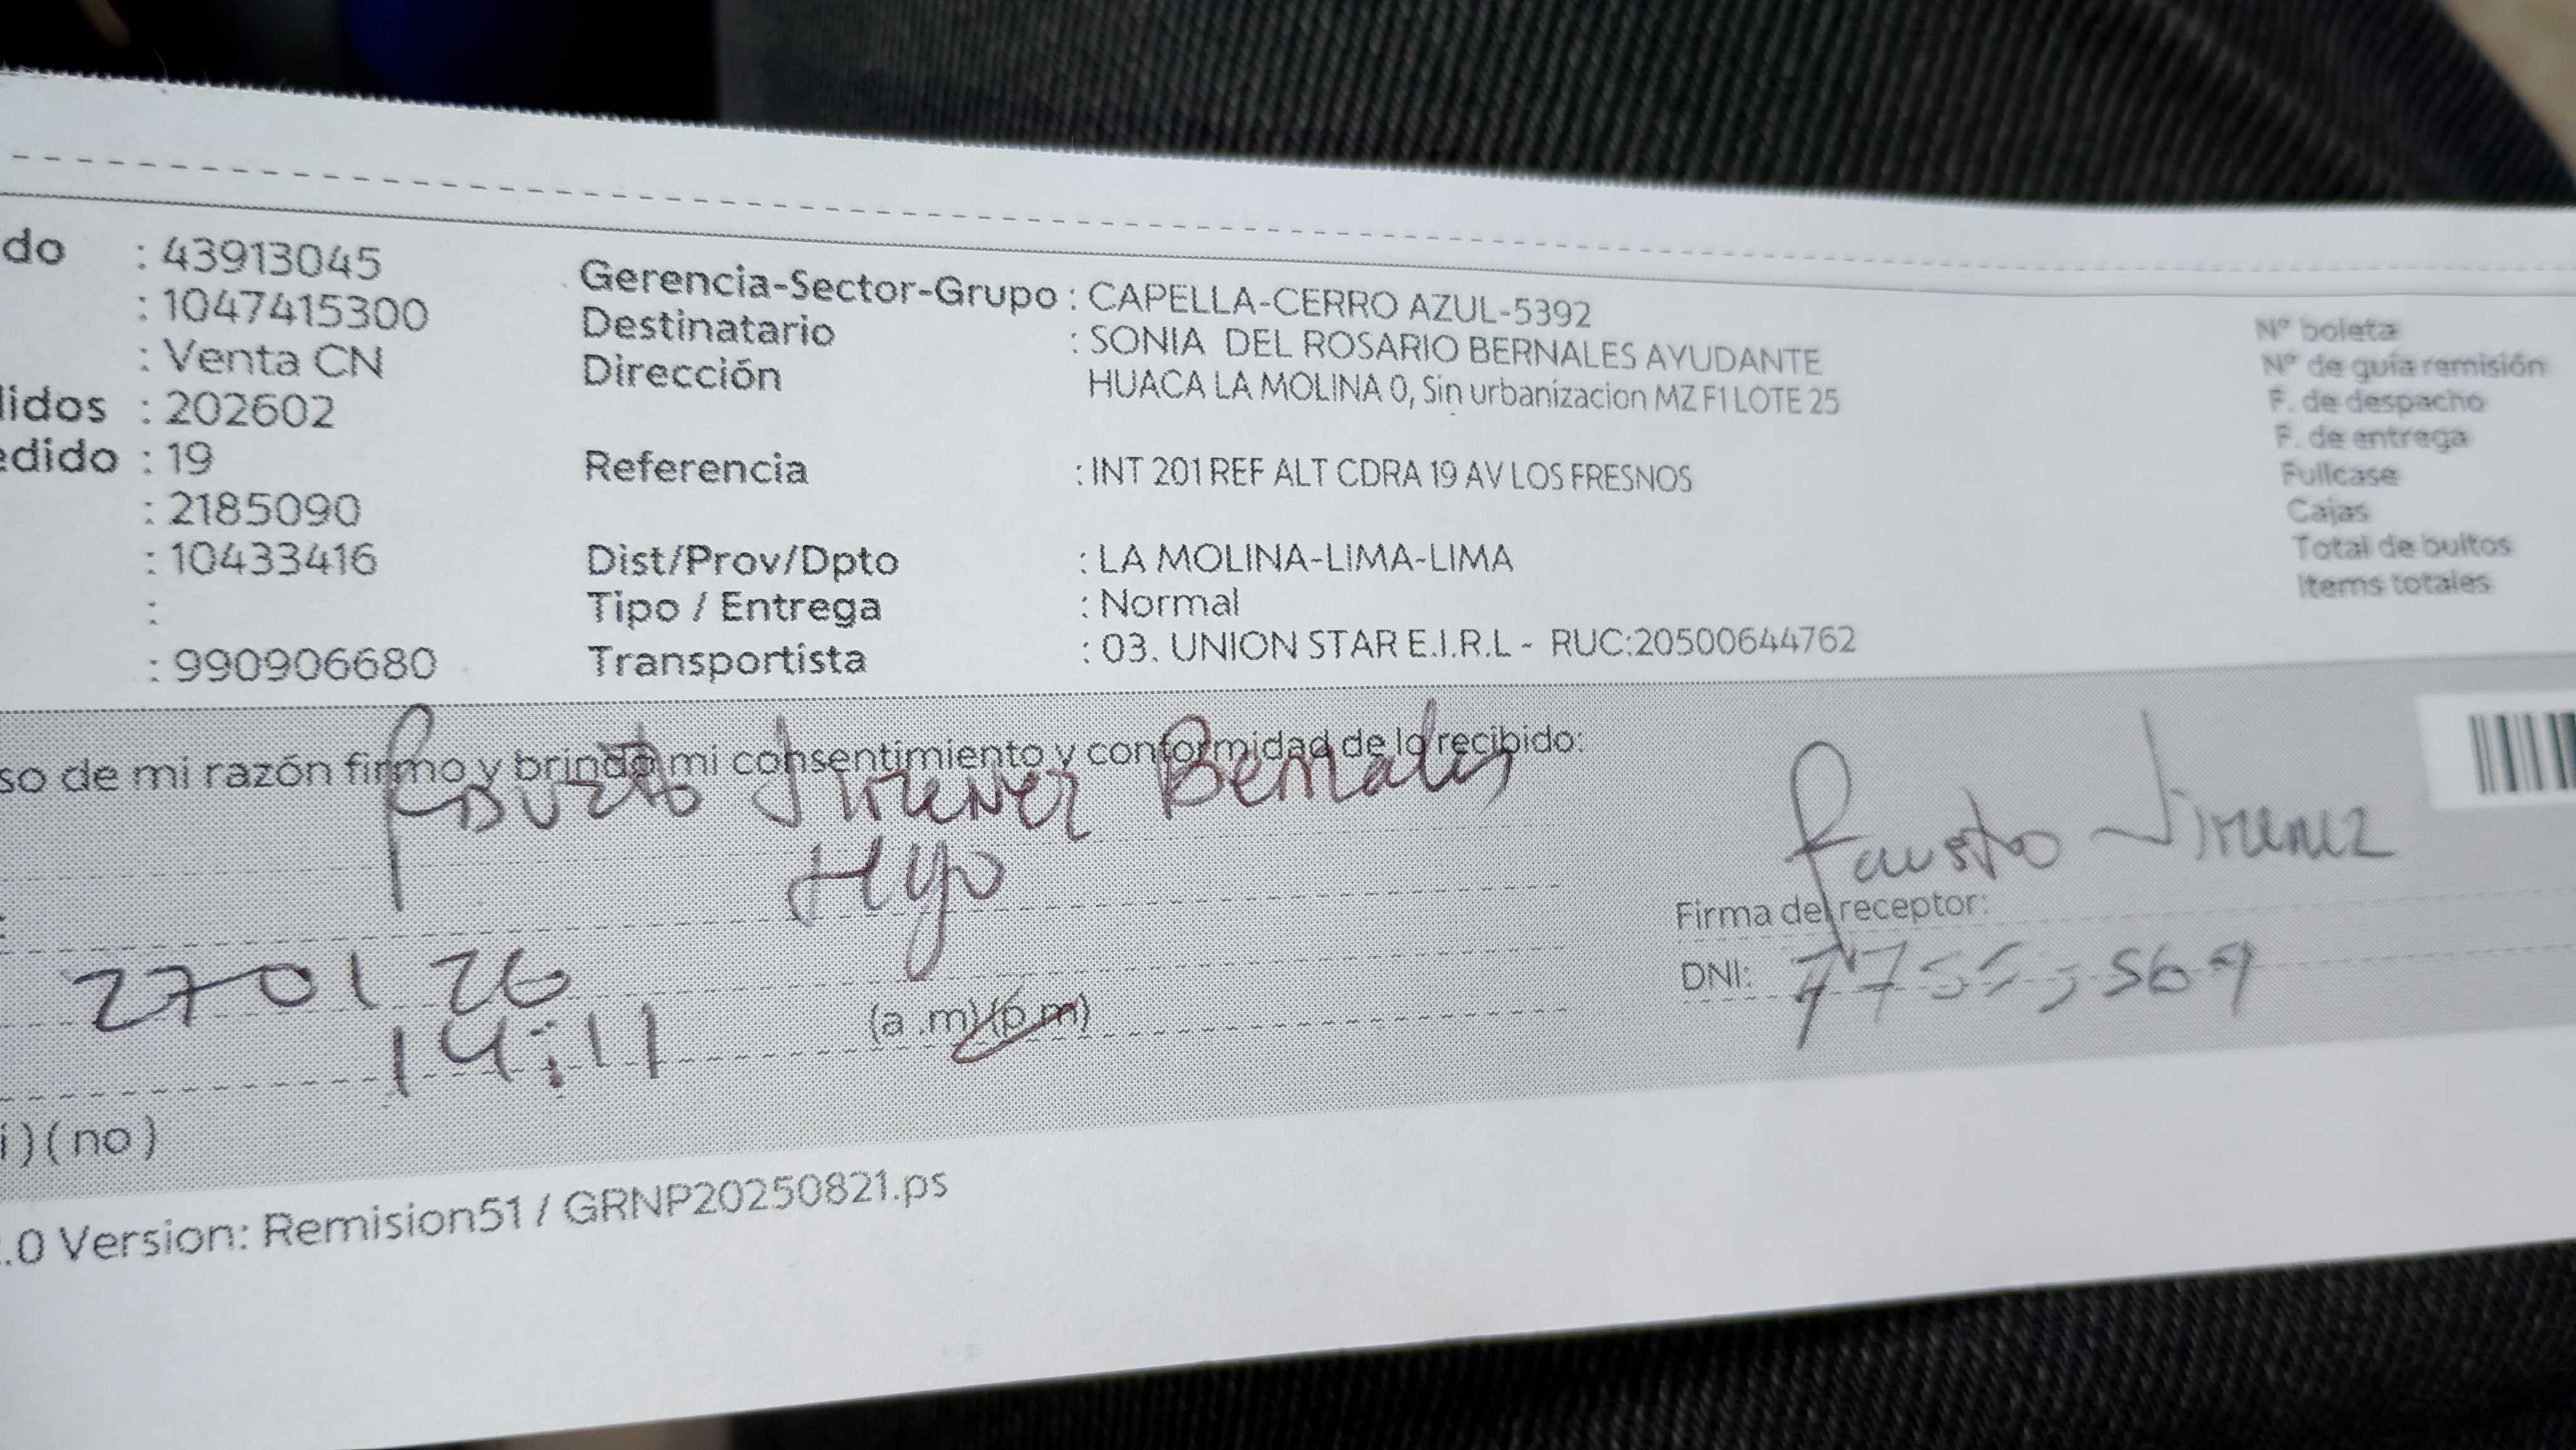 do : 43913045
: 1047415300
: Venta CN
lidos : 202602
edido : 19
: 2185090
: 10433416
:
: 990906680
Gerencia-Sector-Grupo : CAPELLA-CERRO AZUL-5392
Destinatario : SONIA DEL ROSARIO BERNALES AYUDANTE
Dirección HUACA LA MOLINA 0, Sin urbanizacion MZ F1 LOTE 25
Referencia : INT 201 REF ALT CDRA 19 AV LOS FRESNOS
Dist/Prov/Dpto : LA MOLINA-LIMA-LIMA
Tipo / Entrega : Normal
Transportista : 03. UNION STAR E.I.R.L - RUC:20500644762
N° boleta
N° de guía remisión
F. de despacho
F. de entrega
Fullcase
Cajas
Total de bultos
Items totales
so de mi razón firmo y brindo mi consentimiento y conformidad de lo recibido:
Fausto Jimenez Bernales
Hyo
27 01 26
14:11 (a .m) (p m)
Fausto Jimenez
Firma del receptor:
DNI:
i ) ( no )
.0 Version: Remision51 / GRNP20250821.ps